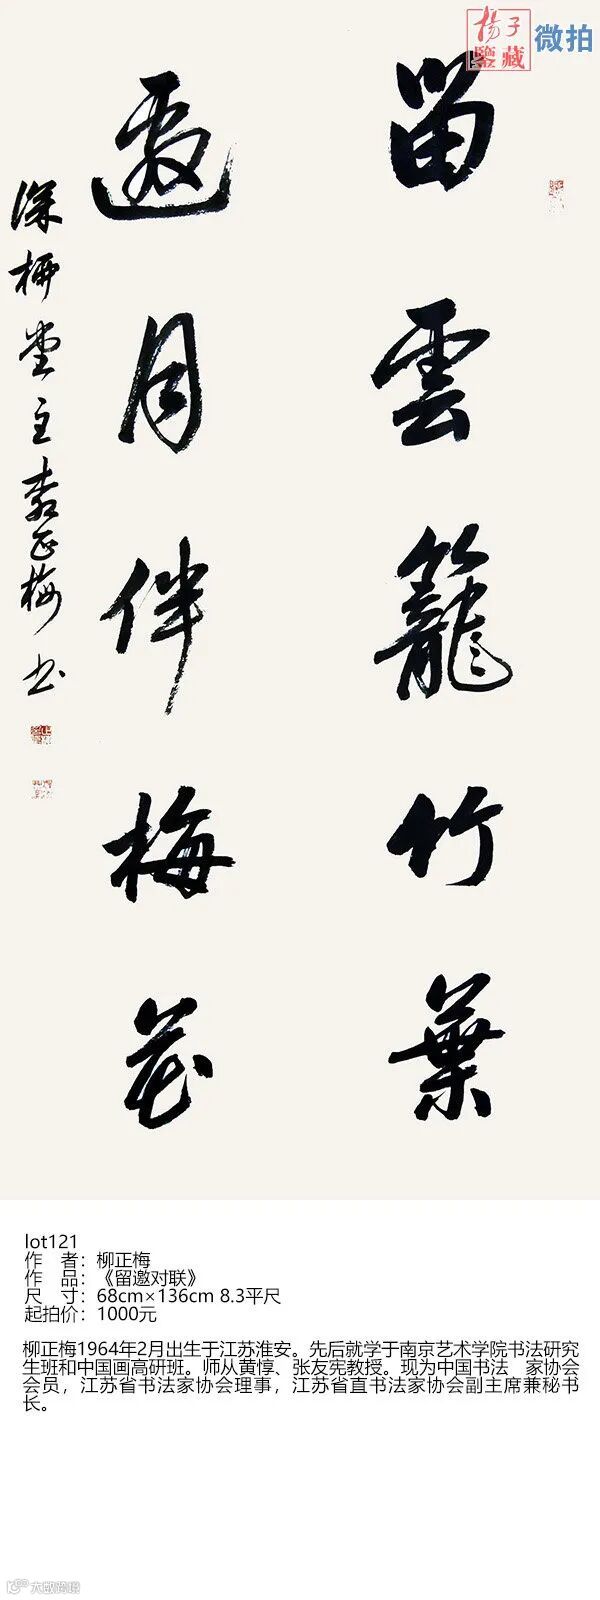 楊子
鑒藏
微拍
留雲籠竹葉
邀月伴梅花
深柳堂主正梅书
lot121
作 者：柳正梅
作 品：《留邀对联》
尺 寸：68cm×136cm 8.3平尺
起拍价：1000元
柳正梅1964年2月出生于江苏淮安。先后就学于南京艺术学院书法研究
生班和中国画高研班。师从黄惇、张友宪教授。现为中国书法 家协会
会员，江苏省书法家协会理事，江苏省直书法家协会副主席兼秘书
长。
大数跨境